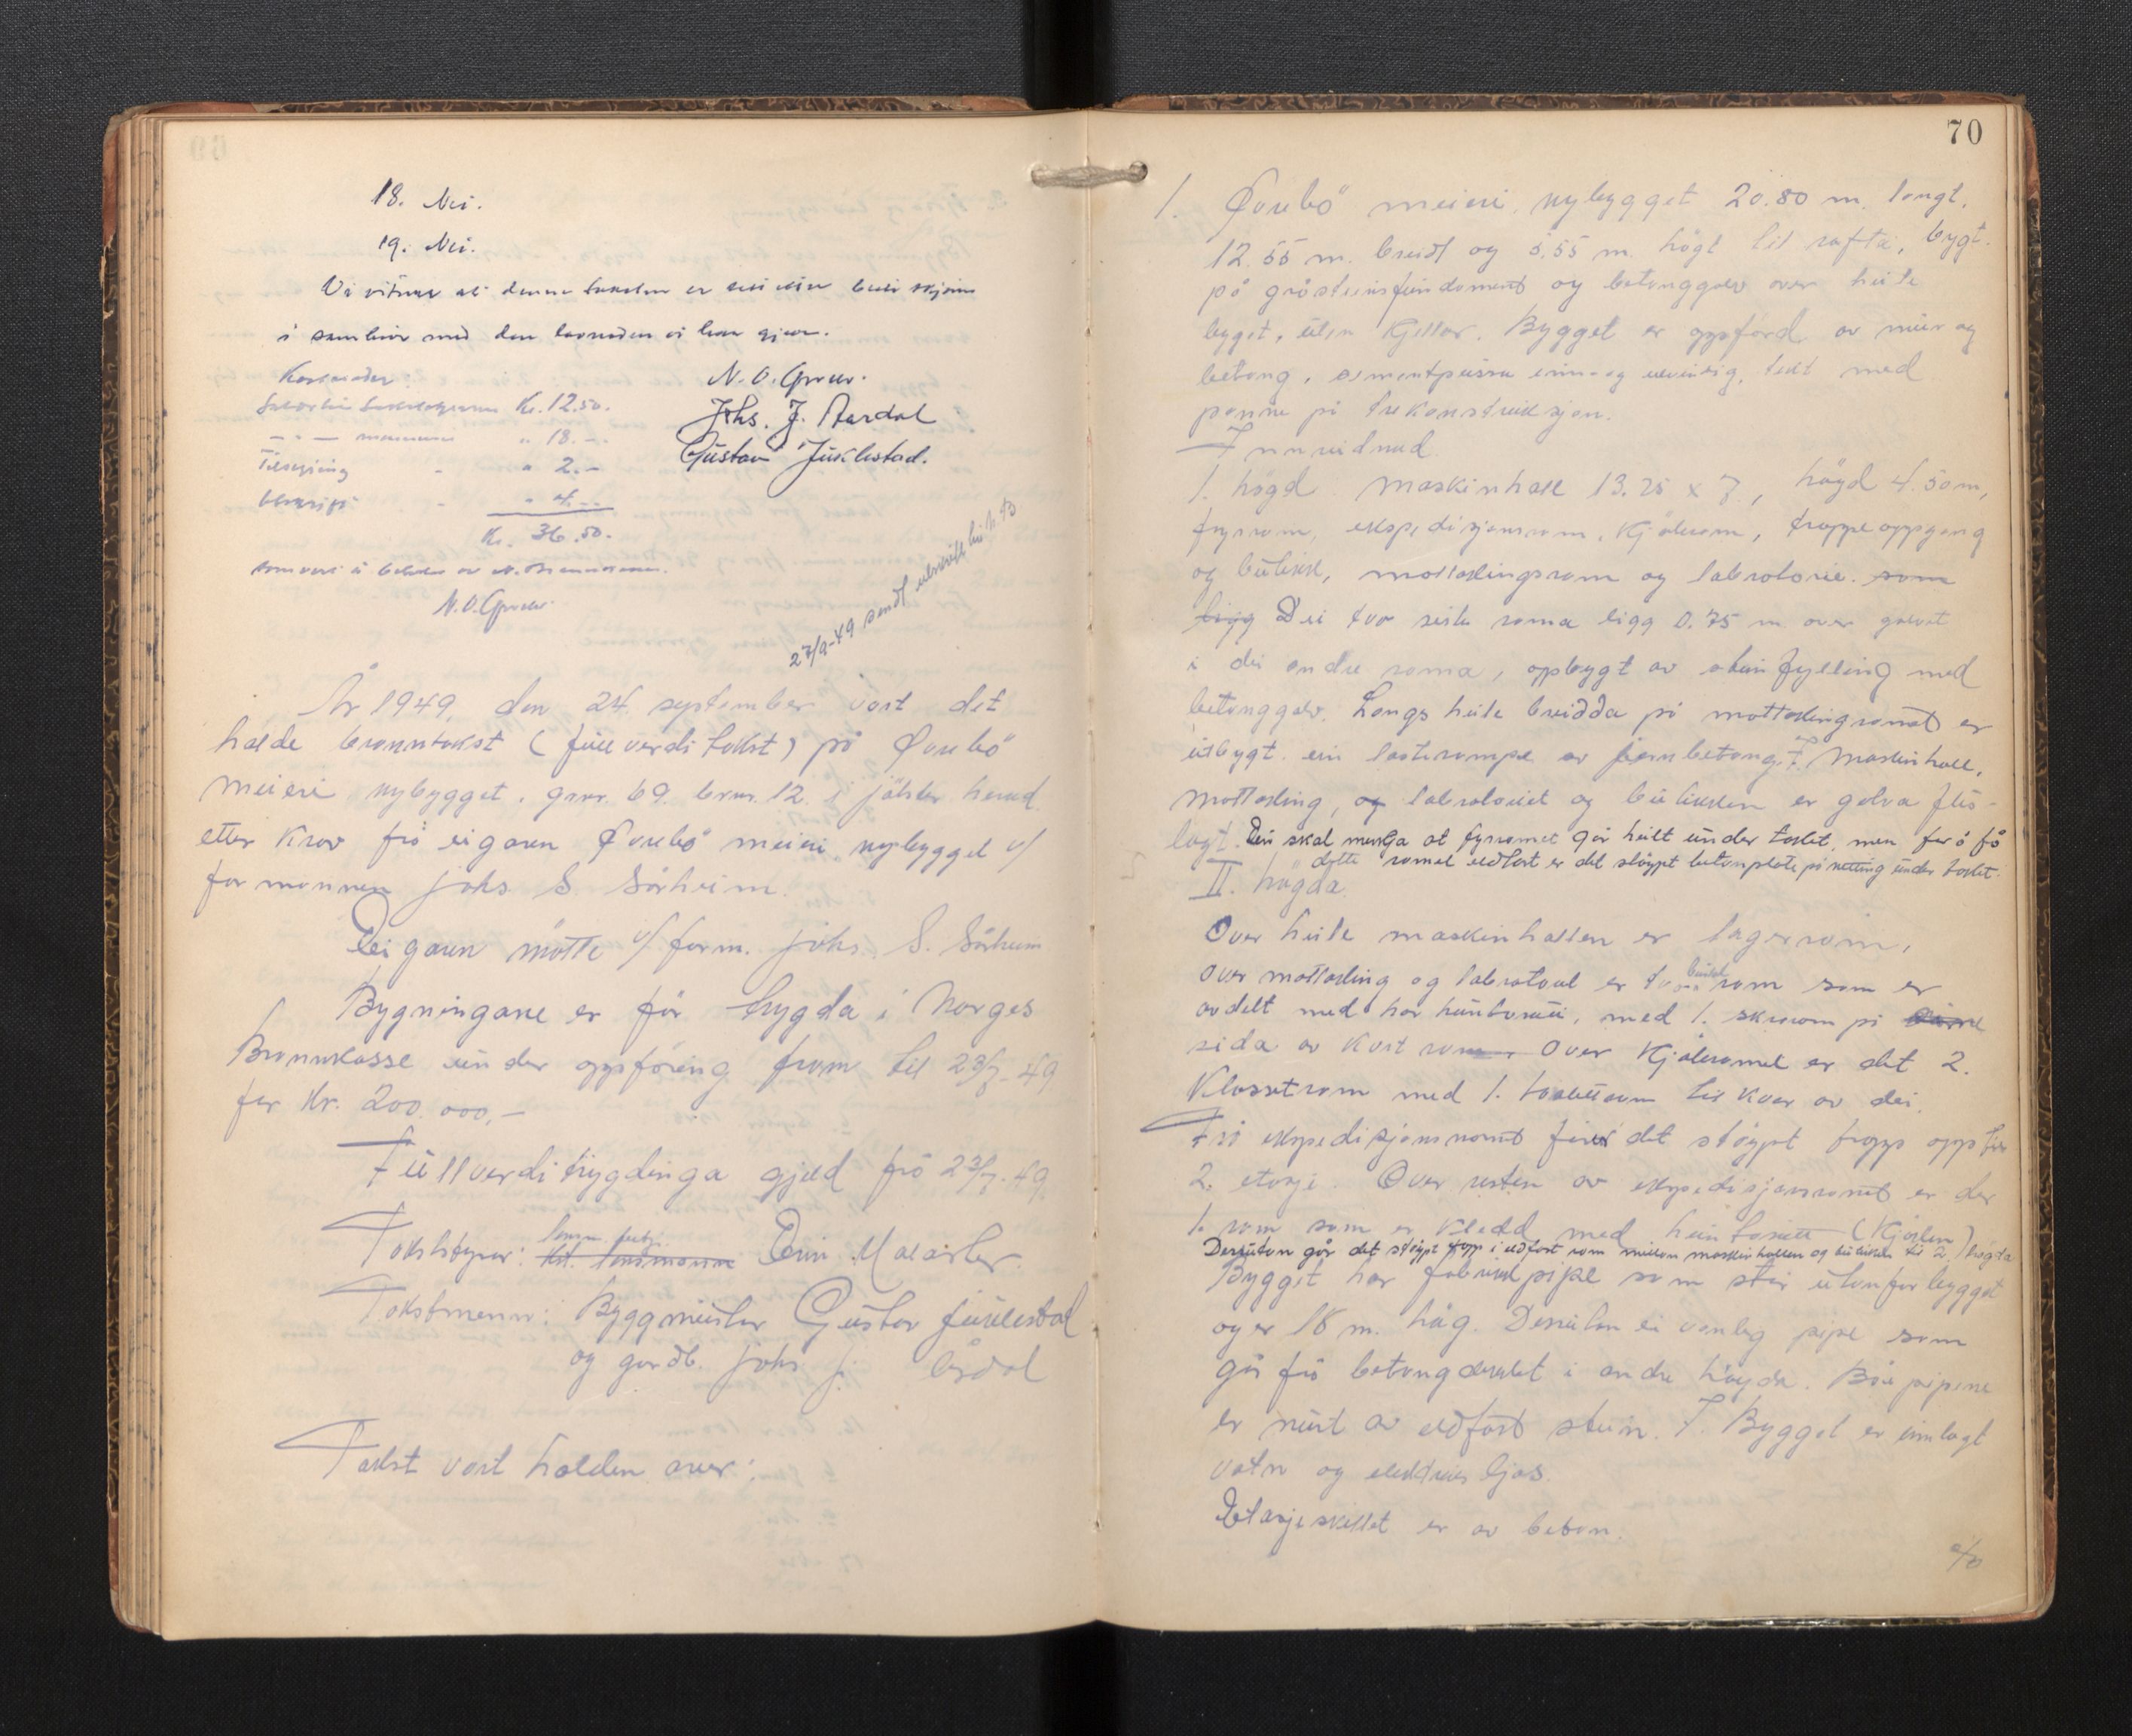 18. Nei.
19. Nei.
Vi vitnar at denne taksten er sett etter beste skjøn
i samhøve med den lovnaden vi har gjeve.
Kostnader:
Kr. 12.50.
" 18.-
" 2.-
Utskrift " 4.-
Kr. 36.50.
N. O.
Johs. J. Aardal
Gustav Juklestad.
27/9-49 sendt utskrift
År 1949, den 24. september vart det
halde branntakst (fullverditakst) på Ømbö
meieri nybygget, gnr. 69. brnr. 12. i jölster herad
etter krav frå eigaren meieri, nybygget v/
formannen johs S. Sörheim.
Eigaren mötte v/ form. johs. S. Sörheim
Bygningane er för trygda i Norges
Brannkasse under oppföring fram til 23/7-49
for Kr. 200.000,-
Fullverditrygdinga gjeld frå 23/7-49
Takststyrar:
Takstmenn: Byggmeister Gustav juklestad
og gardb. johs j. Årdal
Takst vart halden over:
70
1. meieri, nybygget 20.80 m. langt,
12.55 m. breidt og 5.55 m. högt til rafta, bygt
på gråsteinsfundament og betonggolv over heile
bygget, uten kjellar. Bygget er oppförd av mur og
betong, sementpussa inn- og utvendig, tekt med
panne på trekonstruksjon.
Innreidnad
1. högd. Maskinhall 13.25 x 7., högd 4.50 m,
fyrrom, ekspedisjonsrom, kjölerom, trappeoppgang
og butikk, mottakingsrom og labratorie. som
ligg Dei tvo siste roma ligg 0.75 m over golvet
i dei andre roma, oppbygt av steinfylling med
betonggolv. Langs heile breidda på mottakingromet er
utbygt ein lasterampe av jernbetong. I Maskinhall,
mottaking, og labratoriet og butikken er golva flis-
lagt. Ein skal merka at fyrromet går heilt under taket, men for å få
dette romet eldfast er det stöypt betonplate på netting under taket.
II. högda.
Over heile maskinhallen er lagerrom,
over mottaking og labratoriet er rom som er
avdelt med har huntonitt, med 1. skaprom på
sida av kvart rom. Over Kjölromet er det 2.
Klosettrom med 1. toalettrom til kvar av dei.
Frå ekspedisjonsromet förer det stöypt trapp opp til
2. etasje. Over resten av ekspedisjonsromet er der
1. rom som er kledd med huntonitt (Kjölen)
Dessutan går det stöypt trapp i eldfast rom millom maskinhallen og butikken til 2. högda
Bygget har fabrikkpipe som står utanfor bygget
og er 16 m. hög. Dessutan ei vanleg pipe som
går frå betongdekket i andre högda. Båe pipene
er murt av eldfast stein. I Bygget er innlagt
vatn og elektrisk ljos.
Etasjeskillet er av beton.